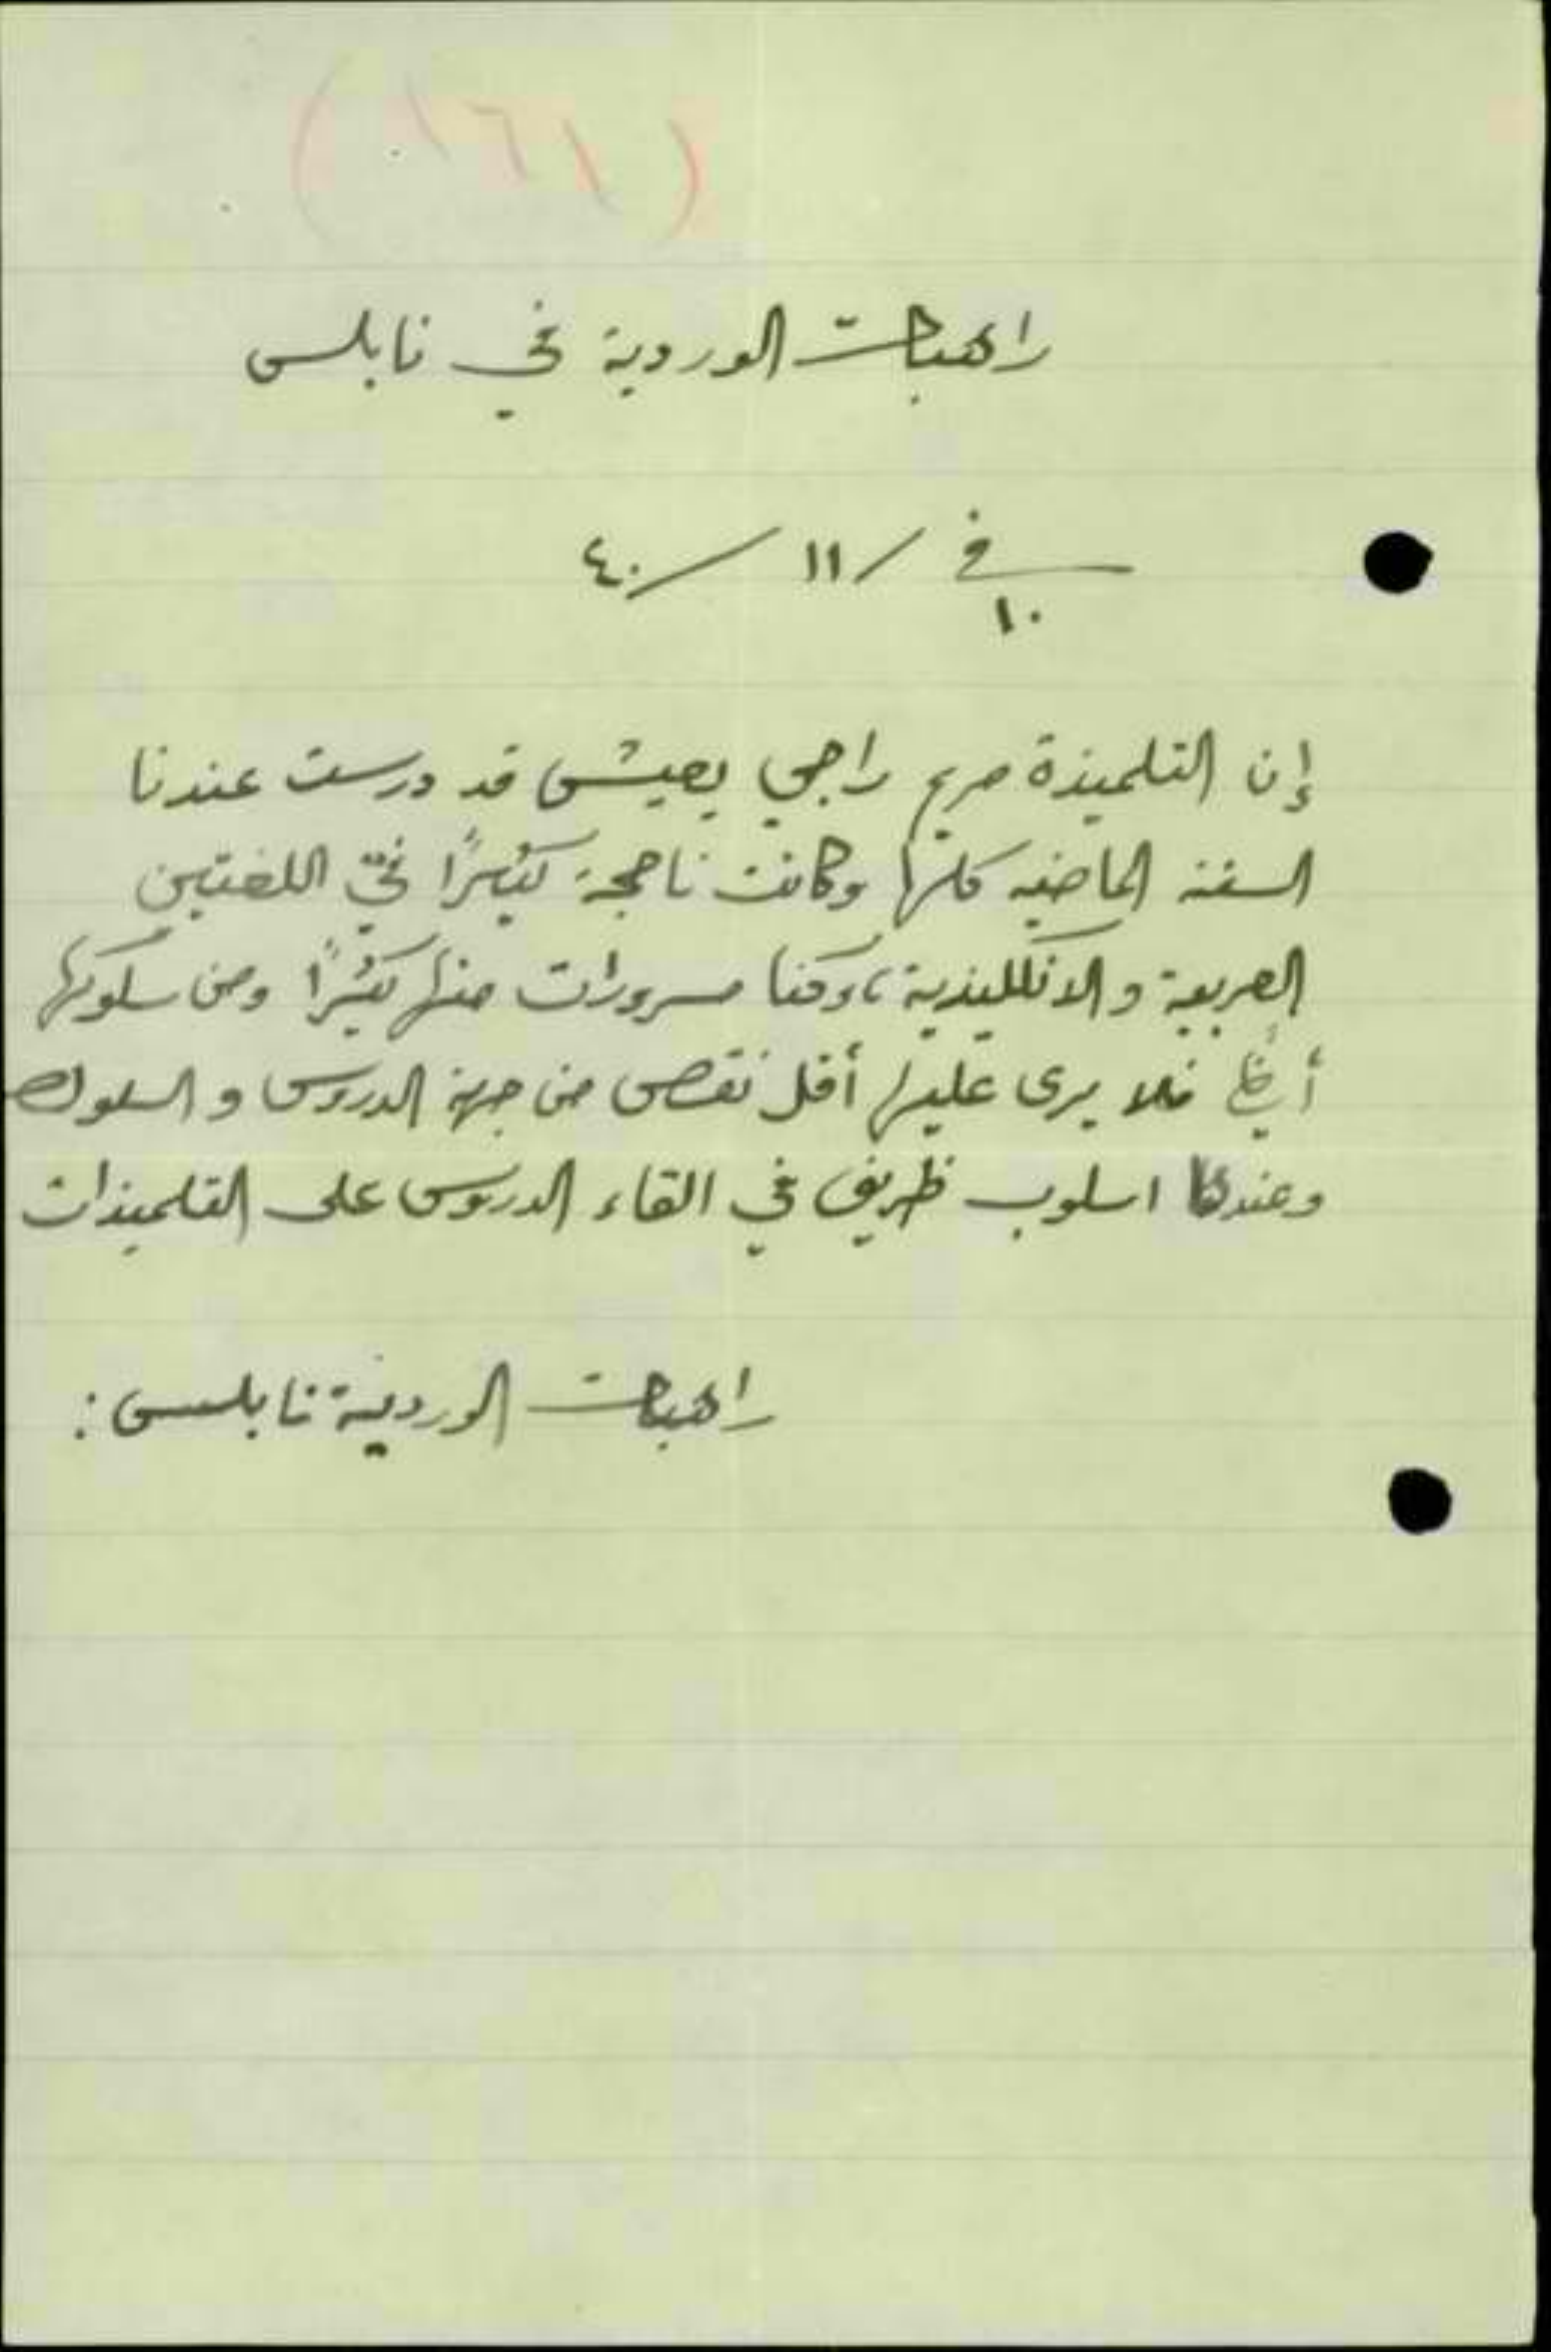 (١٦١)
راهبات الوردية في نابلس
في ١٠/ ١١/ ٤٠
إن التلميذة مريم راجي يعيش قد درست عندنا
السنة الماضيه كلها وكانت ناجحة كثيرًا في اللغتين
العربية والانكليزية، وكنا مسرورات منها كثيرًا ومن سلوكها
أيضًا فلا يرى عليها أقل نقص من جهة الدروس والسلوك
وعندها اسلوب ظريف في القاء الدروس على التلميذات
راهبات الوردية نابلس: